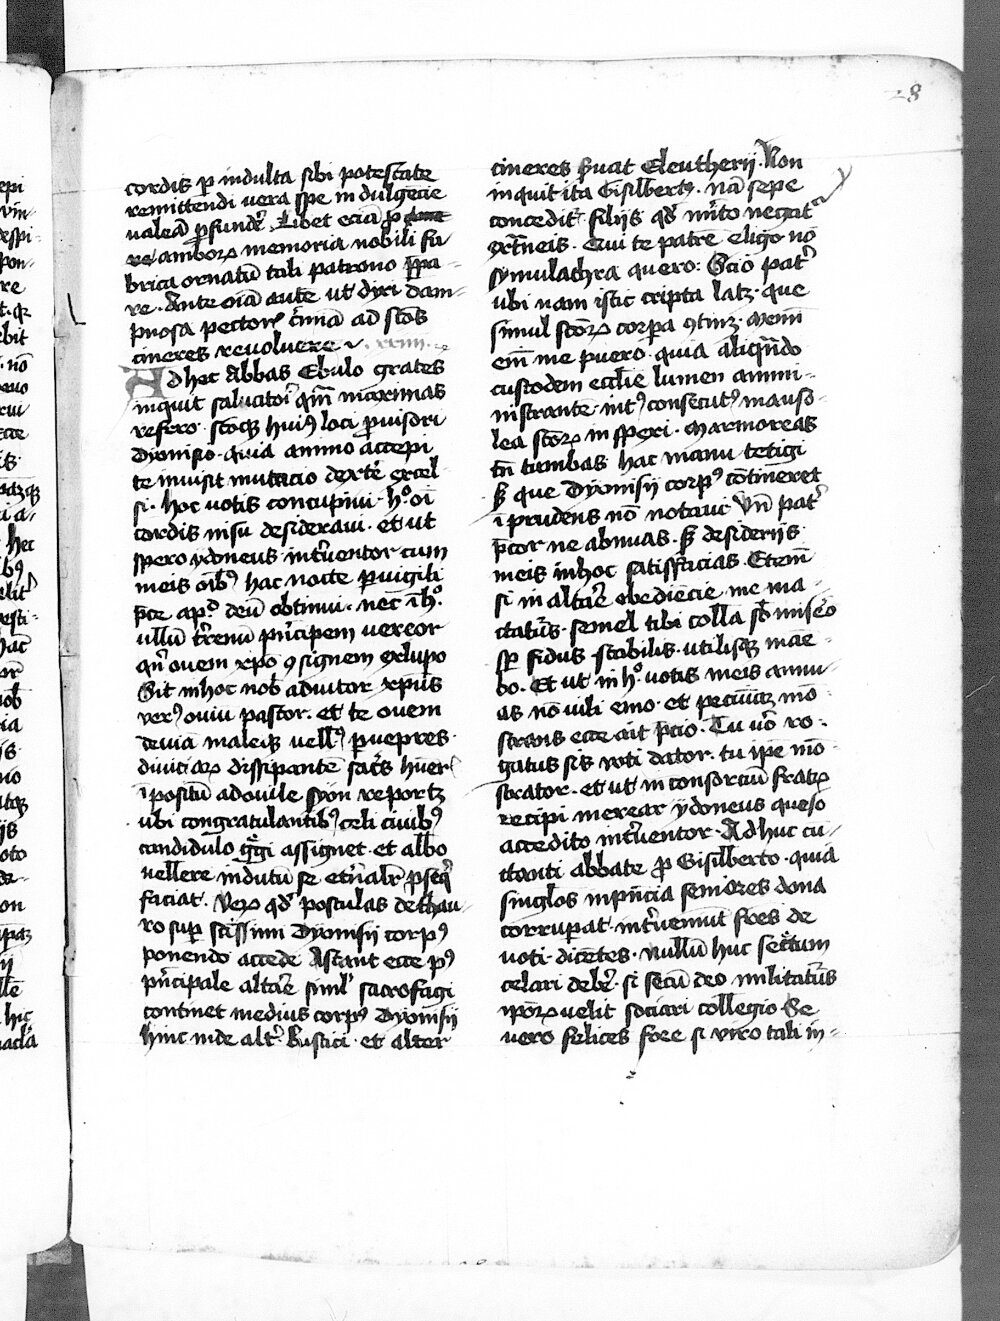 28
cordis p indulta sibi potestate
remittendi vera spe indulgēcie
valeā pfundeʳ. Libet eciā p
re amboꝝ memoria nobili fa
brica ornatū tali patrono ppa-
re. Ante oīa autē ut dixi dam-
pnosa pectoris c̄mīa ad scōs
cineres revoluere
Adhec Abbas Ebulo grates
inquit salutatoʳ qm̄ maximas
refero. scōsqꝫ huiꝰ loci pvisori
dyonisio. quia animo accepi
te invisit mutacio dextē excel-
si. hoc votis concupivi. hᵒ oī
cordis nisu desideravi. et ut
spero ydoneus intʳventor cum
meis oībꝰ hac nocte pvigili
p̄ce apᵈ deū obtinui. nec ī hᵒ.
ullū trēnū pⁱncipem vereor
qn̄ ovem xpō ꝯsignem exlupo
Sit inhoc nob̄ adiutor xpūs
verꝰ oviū pastor. et te ovem
deviā maleqꝫ vellꝰ pvepres
diviciaꝝ dissipantē sacⁱs huēr
īpositū adovile syon reportꝫ
ubi congratulantibꝰ celi civibꝰ
candidulo gᵉgi assignet et albo
vellere indutū se etn̄alr̄ pseqⁱ
faciat. Veꝝ qd̄ postulas dethau-
ro sup scissimi dyonisii corpꝰ
ponendo accede Astant ecce pꝰ
pⁱncipale altāe simlʳ sacrofagi
continet medius corpꝰ dyonisii
hinc inde altʳ Rustici et alter
cineres ẜuat Eleutherii. Non
inquit ita Gisilbertꝰ. nā sepe
conceditʳ filiis qd̄ mⁱto negatʳ
extn̄eis. Qui te patrē eligo nō
symulachra quero: Scio patʳ
ubi nam istic cripta latꝫ. que
simul scōꝝ corpa ꝯtinꝫ. Memī
em̄ me puero. quia aliqn̄do
custodem eccl̄ie lumen ammi-
nistrantē. intꝰ consecutꝰ mauso-
lea scōꝝ inspexi. Marmoreas
tn̄ tumbas hac manu tetigi
ẜ que dyonisii corpꝰ cōtineret
īprudens nō notavi. Vn̄ patʳ
p̄cor ne abnuas. ẜ desideriis
meis inhoc satisfacias. Etem̄
si in altāe obediēcie me ma-
ctatūs. semel tibi colla sb̄ misēo
sp̄ fidus stabilis utilisqꝫ māe-
bo. Et ut in hᵒ. votis meis annu-
as nō vili emo. et pecuīaꝫ mō-
strans ecce ait p̄cio. Tu vᵒ ro-
gatus sis voti dator. tu ipē mō-
strator. et ut in consorciū fratꝝ
recipi merear ydoneus queso
accedito intʳventor. Adhuc cū-
ctanti abbate p Gisilberto. quia
singlos inpn̄cia seniores dona
corrupat. intʳveniūt sōes de
voti. dicētes. nullū huc secʳtum
celari debē. si secū deo militatūs
ipōꝝ velit sociari collegio. Se
vero felices fore si viro tali in-